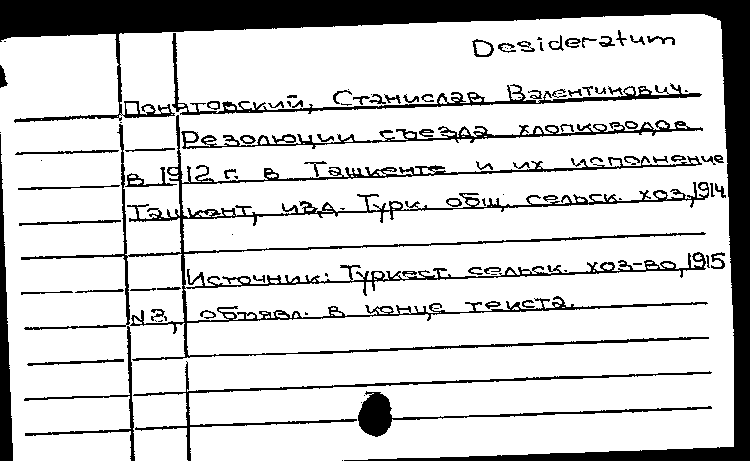 Desideratum
Понятовский, Станислав Валентинович.
Резолюции съезда хлопководов
в 1912 г. в Ташкенте и их исполнение
Ташкент, изд. Турк. общ. сельск. хоз., 1914
Источник: Туркест. сельск. хоз-во, 1915
N 3, объявл. в конце текста.